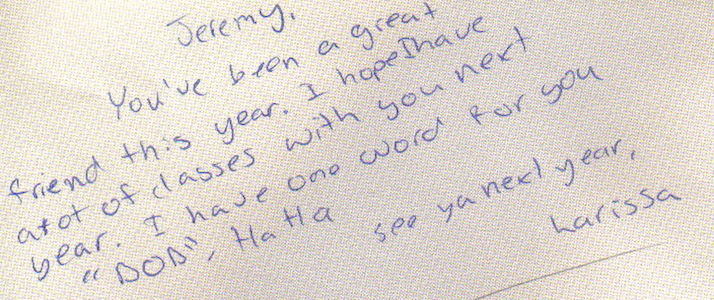 Jeremy,
You've been a great
friend this year. I hope I have
a lot of classes with you next
year. I have one word for you
"DOD", HaHa see ya next year,
Larissa